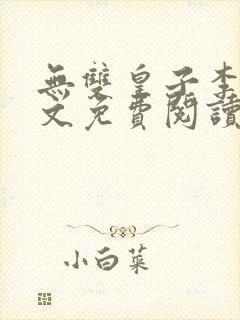 無雙皇子李
文免費閱讀
小白菜